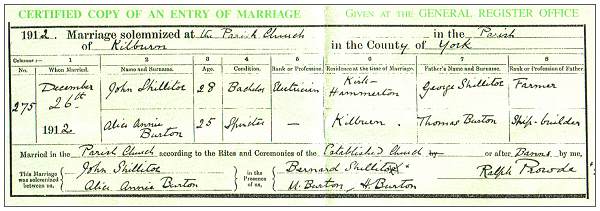 CERTIFIED COPY OF AN ENTRY OF MARRIAGE GIVEN AT THE GENERAL REGISTER OFFICE
1912. Marriage solemnized at the Parish Church in the Parish
of Kilburn in the County of York
Columns :— 1 2 3 4 5 6 7 8
No. When Married. Name and Surname. Age. Condition. Rank or Profession. Residence at the time of Marriage. Father's Name and Surname. Rank or Profession of Father.
275 December 26th 1912 John Shillito 28 Bachelor Kirk-Hammerton George Shillito Farmer
Alice Annie Burton 25 Spinster — Kilburn. Thomas Burton Ship-builder
Married in the Parish Church according to the Rites and Ceremonies of the Established Church by or after Banns by me,
This Marriage was solemnized between us, John Shillito Alice Annie Burton in the Presence of us, Bernard Shillito M. Burton, H. Burton Ralph Prowde